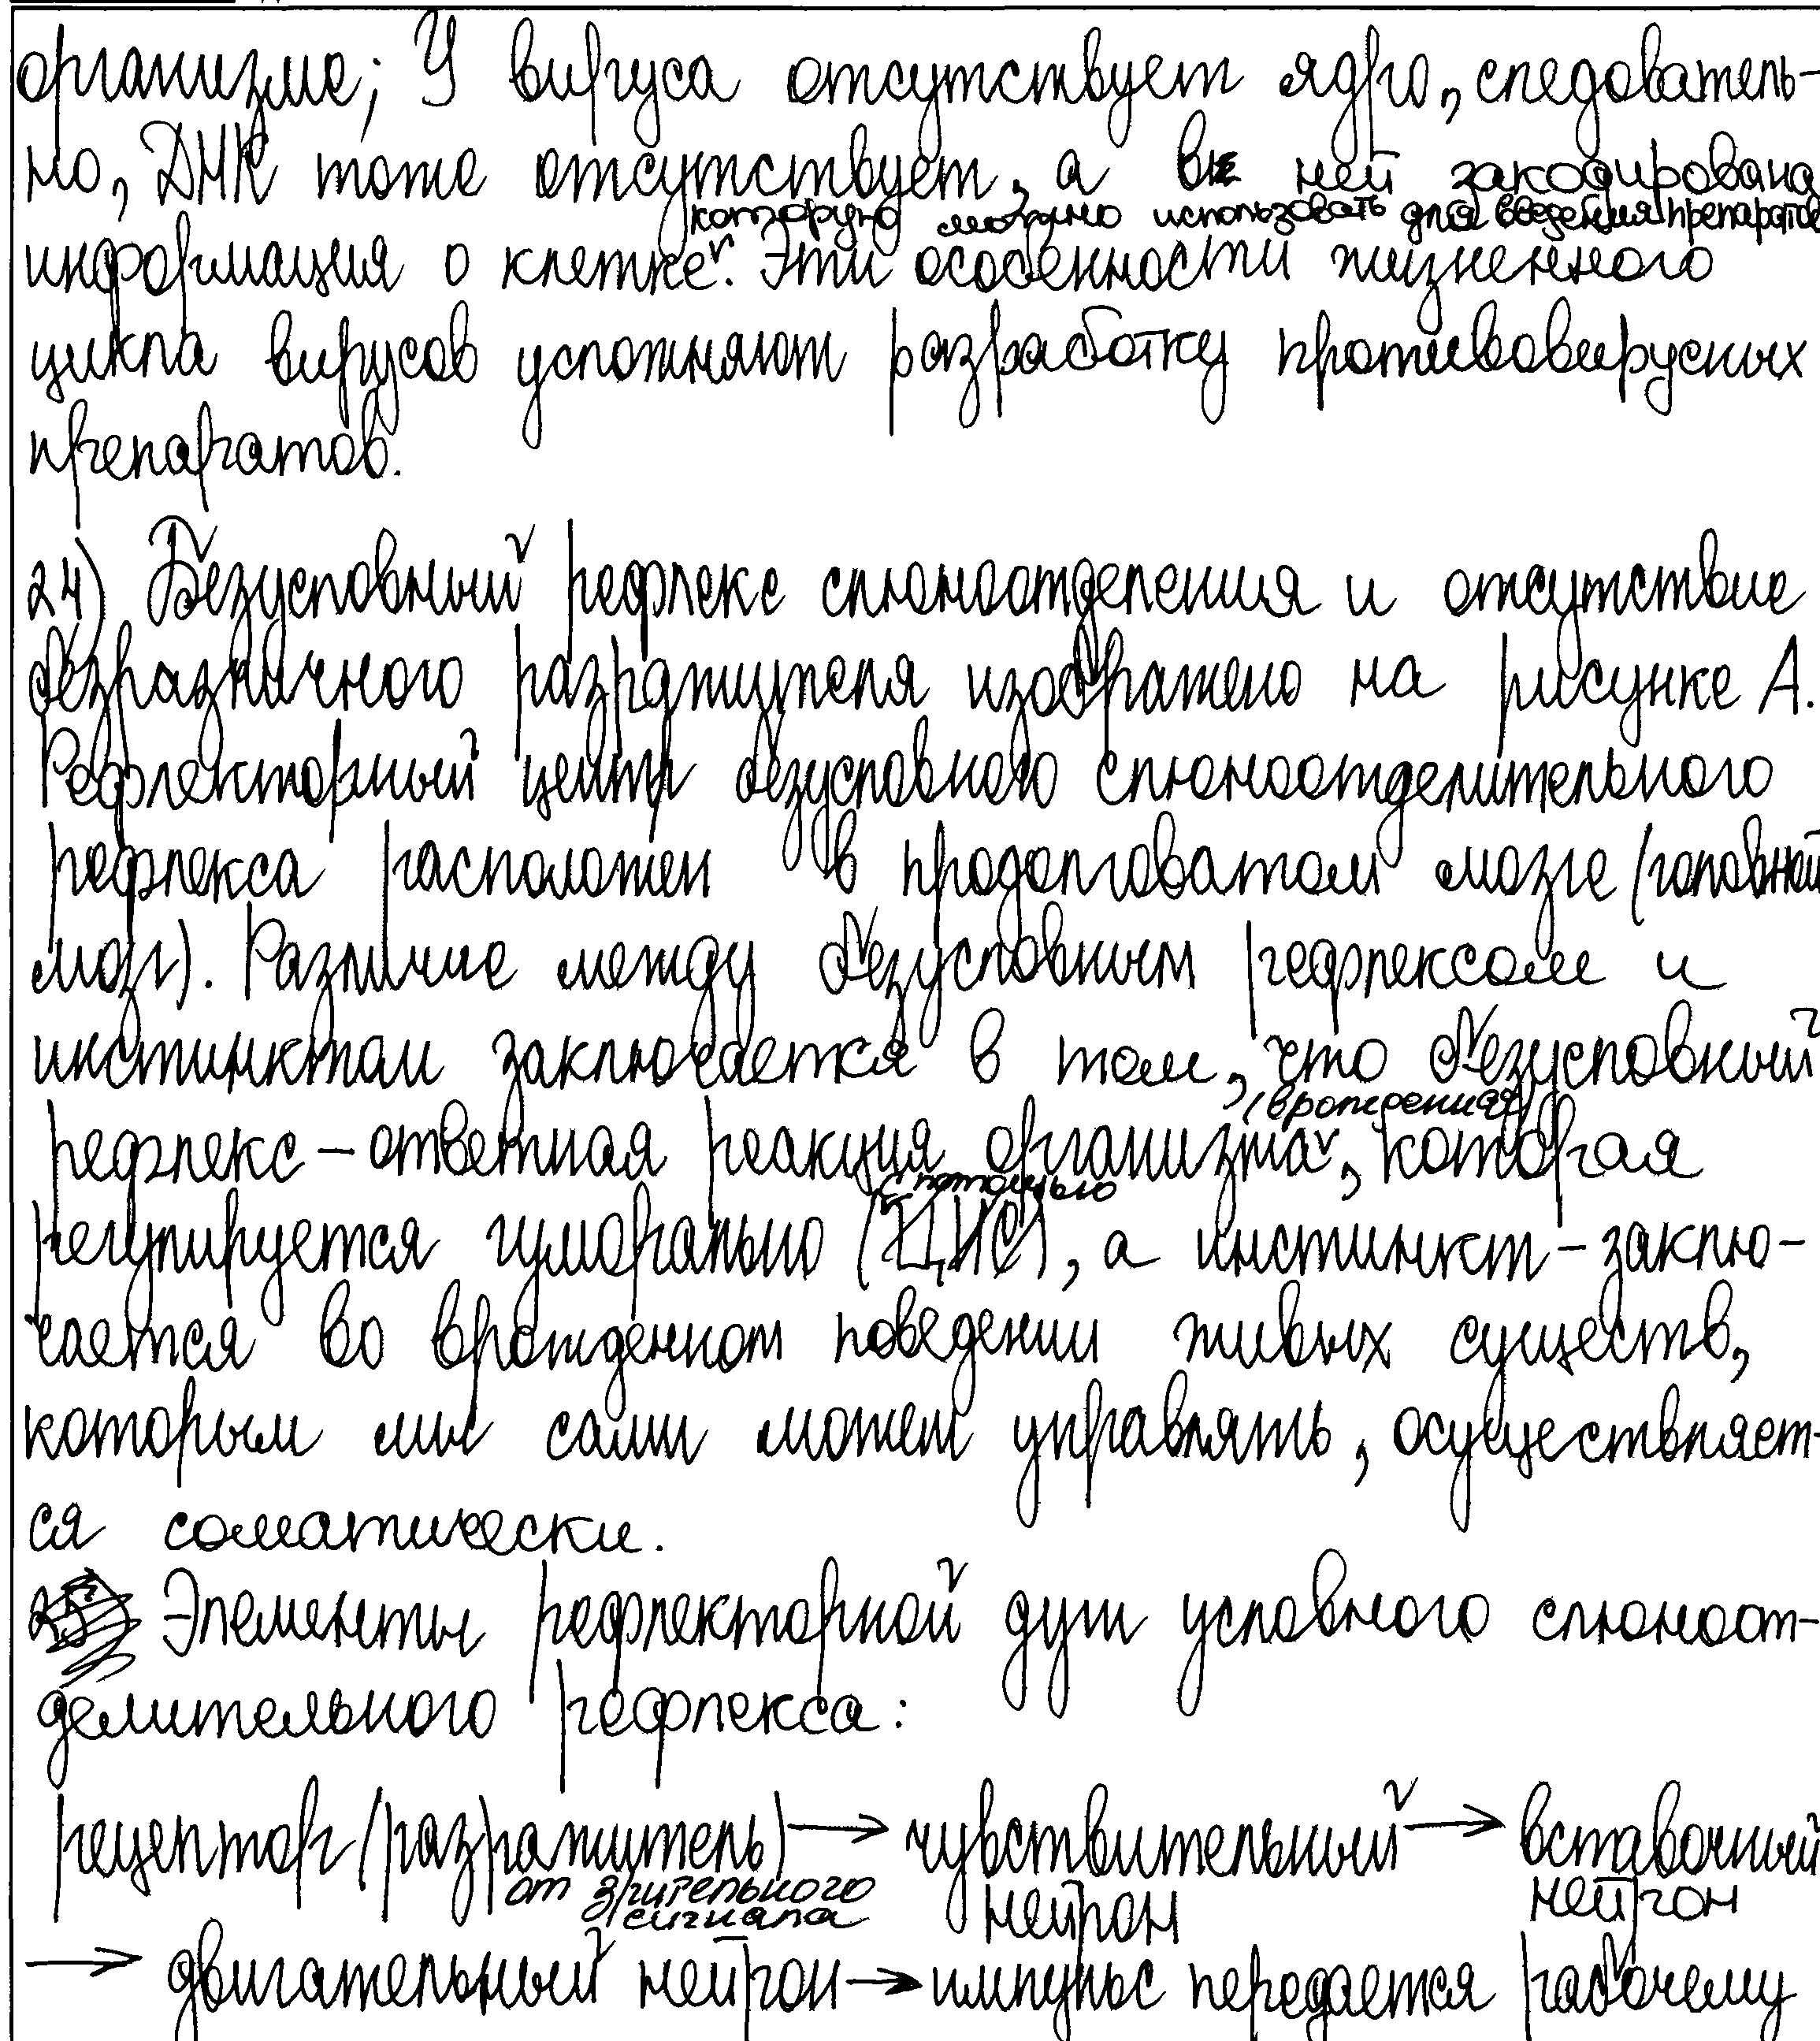 организме; У вируса отсутствует ядро, следователь-
но, ДНК тоже отсутствует, а в ней закодирована
которую можно использовать для введения препаратов
информация о клетке. Эти особенности жизненного
цикла вирусов усложняют разработку противовирусных
препаратов.
24) Безусловный рефлекс слюноотделения и отсутствие
безразличного раздражителя изображено на рисунке А.
Рефлекторный центр безусловного слюноотделительного
рефлекса расположен в продолговатом мозге (головной
мозг). Различие между безусловным рефлексом и
инстинктом заключается в том, что безусловный
(врожденная)
рефлекс – ответная реакция организма, которая
с помощью
регулируется гуморально (ЦНС), а инстинкт – заклю-
чается во врожденном поведении живых существ,
которым мы сами можем управлять, осуществляет-
ся соматически.
Элементы рефлекторной дуги условного слюноот-
делительного рефлекса:
рецептор (раздражитель) → чувствительный → вставочный
от зрительного нейрон нейрон
сигнала
→ двигательный нейрон → импульс передается рабочему